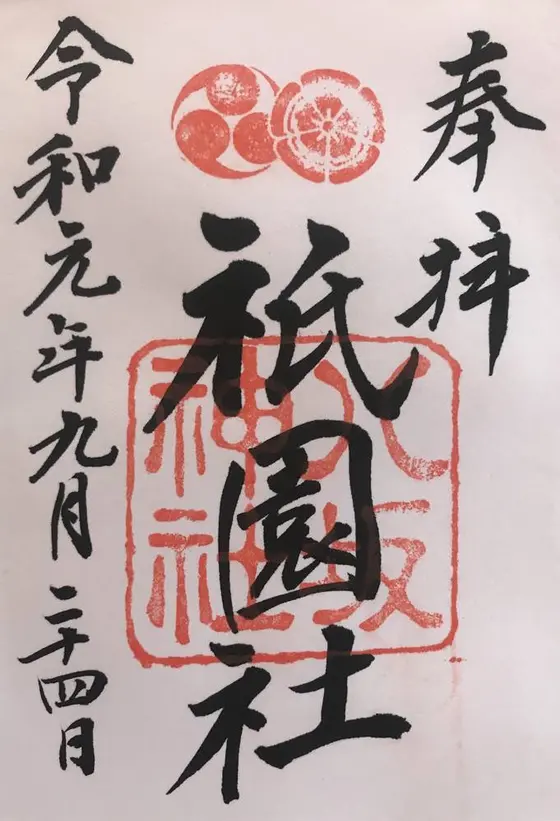 奉拝
祇園社
八坂
神社
令和元年九月二十四日